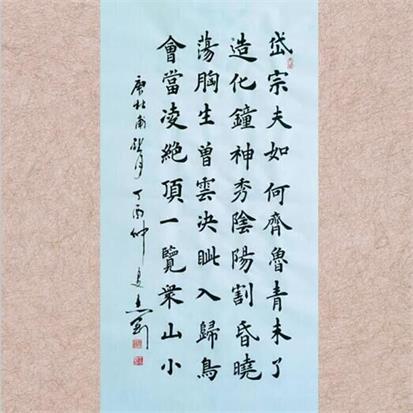 岱宗夫如何齊魯青未了
造化鐘神秀陰陽割昏曉
蕩胸生曾雲決眦入歸鳥
會當凌絕頂一覽衆山小
唐杜甫 仲夏